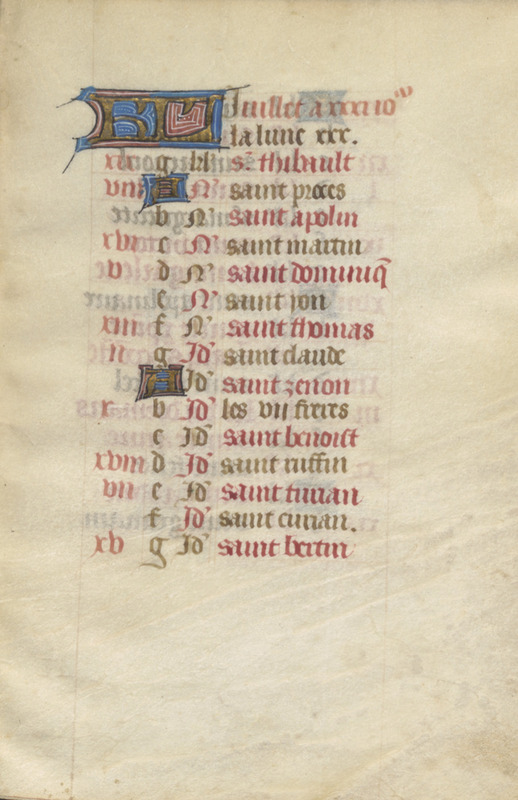 KL Juillet a xxxi io͛
la lune xxx.
xix g kl͛ s͛ thibault
viii A N͛ saint proces
b N͛ saint apolin
xvi c N͛ saint martin
v d N͛ saint dominiq̃
e N͛ saint ion
xiii f N͛ saint thomas
ii g Id͛ saint claude
A Id͛ saint zenon
x b Id͛ les vii freres
c Id͛ saint benoist
xviii d Id͛ saint ruffin
vii e Id͛ saint turian
f Id͛ saint curian.
xv g Id͛ saint bertin